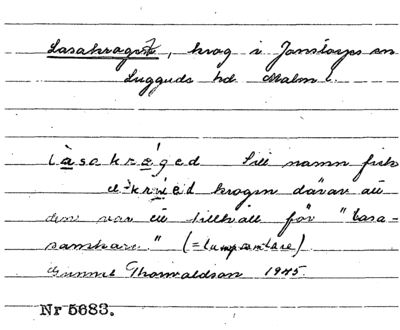 Lasakroget, krog i Jonstorps sn
Luggude hd Malm l.
làsakrǝ́ged Sitt namn fick
krogen därav att
den var ett tillhåll för "lasa-
samlare." (=lumpsamlare)
Gunnel Thorwaldson 1945.
Nr 5683.